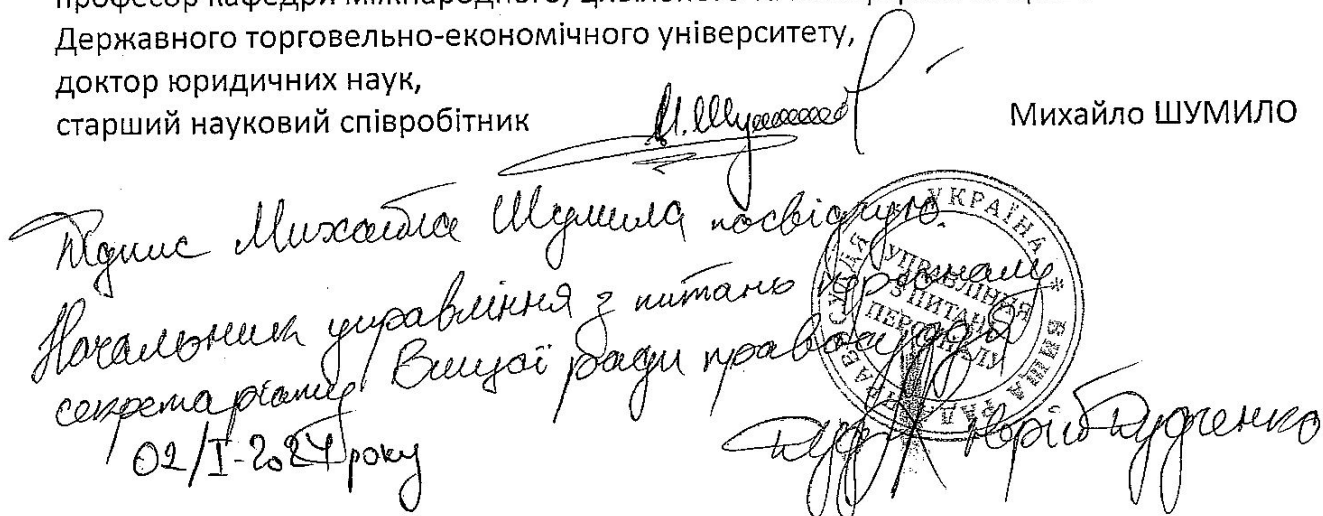 Державного торговельно-економічного університету,
доктор юридичних наук,
старший науковий співробітник
М. Шумило
Михайло ШУМИЛО
Підпис Михайла Шумила посвідчую.
Начальник управління з питань персоналу
секретаріату Вищої ради правосуддя
02/I-2024 року
Юрій Дудченко
УКРАЇНА * ВИЩА РАДА ПРАВОСУДДЯ
УПРАВЛІННЯ
З ПИТАНЬ
ПЕРСОНАЛУ